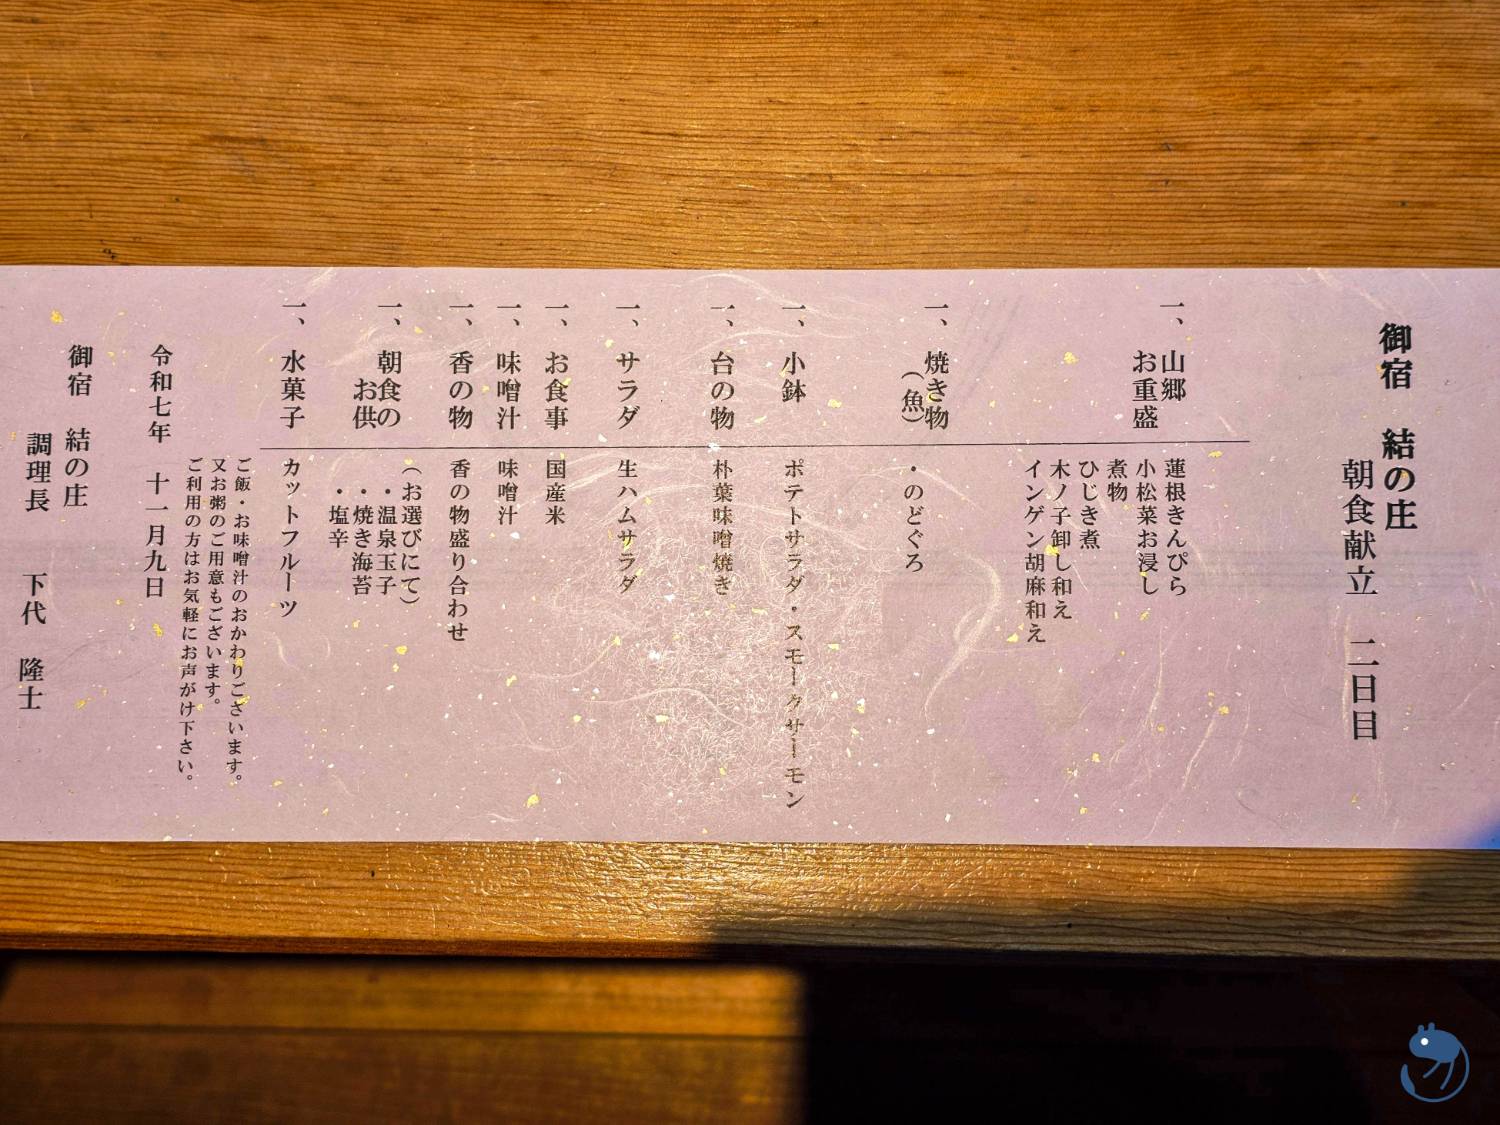 御宿　結の庄
朝食献立　二日目
一、山郷
お重盛
蓮根きんぴら
小松菜お浸し
煮物
ひじき煮
木ノ子卸し和え
インゲン胡麻和え
一、焼き物
（魚）
・のどぐろ
一、小鉢
ポテトサラダ・スモークサーモン
一、台の物
朴葉味噌焼き
一、サラダ
生ハムサラダ
一、お食事
国産米
一、味噌汁
味噌汁
一、香の物
香の物盛り合わせ
一、朝食の
お供
（お選びにて）
・温泉玉子
・焼き海苔
・塩辛
一、水菓子
カットフルーツ
ご飯・お味噌汁のおかわりございます。
又お粥のご用意もございます。
ご利用の方はお気軽にお声がけ下さい。
令和七年　十一月九日
御宿　結の庄
調理長　下代　隆士